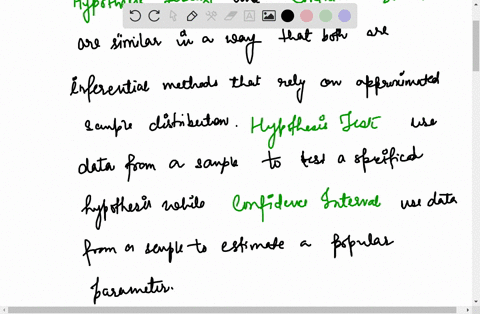 Hypothesis
are similar in a way that both are
inferential methods that rely on approximated
sample distribution. Hypothesis Test use
data from a sample to test a specified
hypothesis while Confidence Interval use data
from a sample to estimate a popular
parameter.